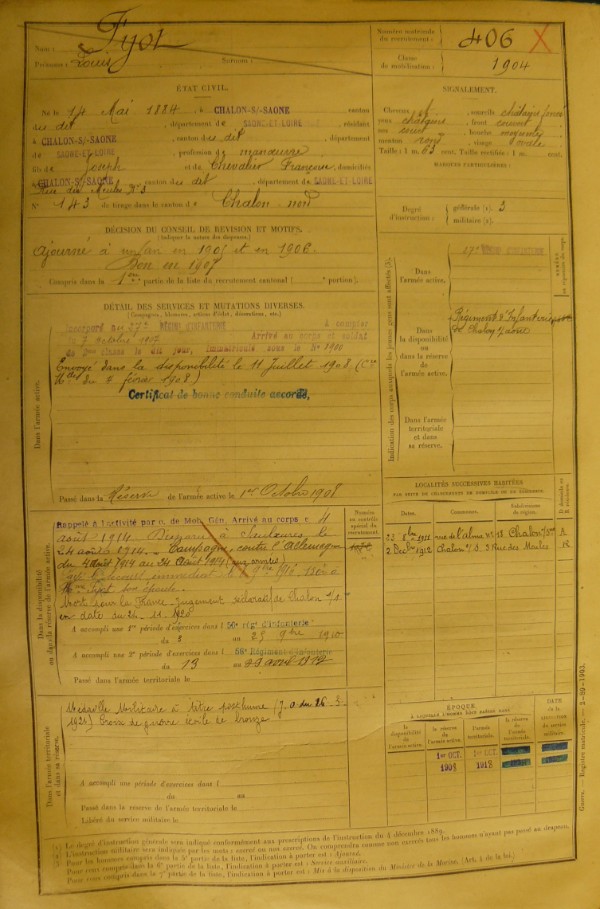 Nom : Fyot
Prénoms : Louis Surnoms :
Numéro matricule du recrutement : 406
Classe de mobilisation : 1904
ÉTAT CIVIL.
Né le 14 Mai 1884, à CHALON-S/-SAONE canton
du dit, département de SAONE-ET-LOIRE, résidant
à CHALON-S/-SAONE, canton du dit, département
de SAONE-ET-LOIRE, profession de manœuvre
fils de Joseph et de Chevalier Françoise, domiciliés
à CHALON-S/-SAONE canton du dit, département de SAONE-ET-LOIRE
Rue des Meules N° 3
N° 143 de tirage dans le canton de Chalon nord
SIGNALEMENT.
Cheveux et sourcils châtains foncé
yeux châtains, front couvert
nez bouche moyenne
menton rond, visage ovale
Taille : 1 m. 63 cent. Taille rectifiée : 1 m. cent.
MARQUES PARTICULIÈRES :
Degré d'instruction : générale (1). 3
militaire (2).
DÉCISION DU CONSEIL DE REVISION ET MOTIFS.
(Indiquer la nature des dispenses.)
Ajourné à un an en 1905 et en 1906
Bon en 1907
Compris dans la 1ère partie de la liste du recrutement cantonal ( portion).
DÉTAIL DES SERVICES ET MUTATIONS DIVERSES.
(Campagnes, blessures, actions d'éclat, décorations, etc.)
Incorporé au 37e RÉGIM D'INFANTERIE A compter
du 7 octobre 1907 Arrivé au corps et soldat
de 2me classe le dit jour, Immatriculé sous le N°
Envoyé dans la disponibilité le 11 Juillet 1908 (Cre
Mle du 6 févr 1908)
Certificat de bonne conduite accordé,
Dans l'armée active.
Passé dans la Réserve de l'armée active le 1er Octobre 1908
Indication des corps auxquels les jeunes gens sont affectés (3).
Dans l'armée active.
37e RÉGIM D'INFANTERIE
Dans la disponibilité ou dans la réserve de l'armée active.
Régiment d'Infanterie
de Chalon s/Saône
Dans l'armée territoriale et dans sa réserve.
LOCALITÉS SUCCESSIVES HABITÉES
PAR SUITE DE CHANGEMENTS DE DOMICILE OU DE RÉSIDENCE.
Dates. Communes. Subdivisions de région.
23 8bre 1911 rue de l'alma n° 18 Chalon s/Sne R
2 Decbre 1912 Chalon s/S. 3 Rue des Meules R
Dans la disponibilité ou dans la réserve de l'armée active.
Rappelé à l'activité par o. de Mob. Gén. Arrivé au corps le 4
août 1914. Disparu à le
24 août 1914. Campagne contre l'Allemagne
du 4 Août 1914 au 24 Août 1914 (aux armées)
Mort pour la France. Jugement déclaratif de Chalon s/S.
en date du 21. 11. 1928
Numéro au contrôle spécial du recrutement.
A accompli une 1re période d'exercices dans l 56e régt d'infanterie
du 3 au 25 9bre 1910
A accompli une 2e période d'exercices dans l 56e Régiment d'infanterie
du 13 au 29 avril 1912
Passé dans l'armée territoriale le
Dans l'armée territoriale et dans sa réserve.
Médaille Militaire à titre posthume (J.O. du 26. 3.
Croix de guerre étoile de bronze
A accompli une période d'exercices dans l
du au
Passé dans la réserve de l'armée territoriale le
Libéré du service militaire le
ÉPOQUE
la disponibilité de l'armée active. la réserve de l'armée active. l'armée territoriale. la réserve de l'armée territoriale.
DATE de la LIBÉRATION du service militaire.
1er OCT. 1908
1er OCT. 1918
(1) Le degré d'instruction générale sera indiqué conformément aux prescriptions de l'instruction du 4 décembre 1889.
(2) L'instruction militaire sera indiquée par les mots : exercé ou non exercé. On comprendra comme non exercés tous les hommes n'ayant pas passé au drapeau.
(3) Pour les hommes compris dans la 5e partie de la liste, l'indication à porter est : Ajourné.
Pour ceux compris dans la 6e partie de la liste, l'indication à porter est : Service auxiliaire.
Pour ceux compris dans la 7e partie de la liste, l'indication à porter est : Mis à la disposition du Ministre de la Marine. (Art. 4 de la loi.)